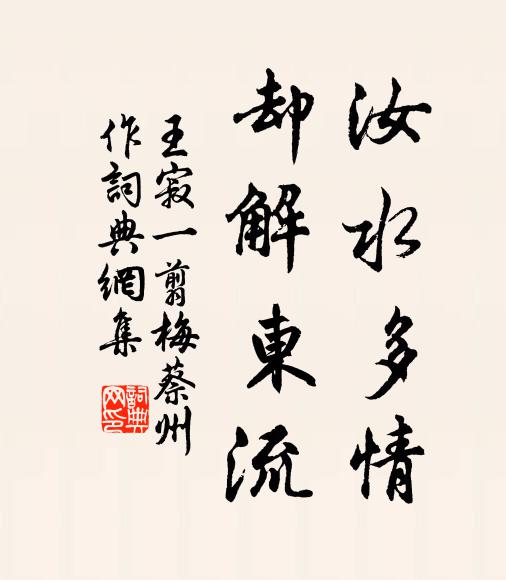 汝水多情
却解東流
王寂一剪梅蔡州
作詞典網集
詞典
网印